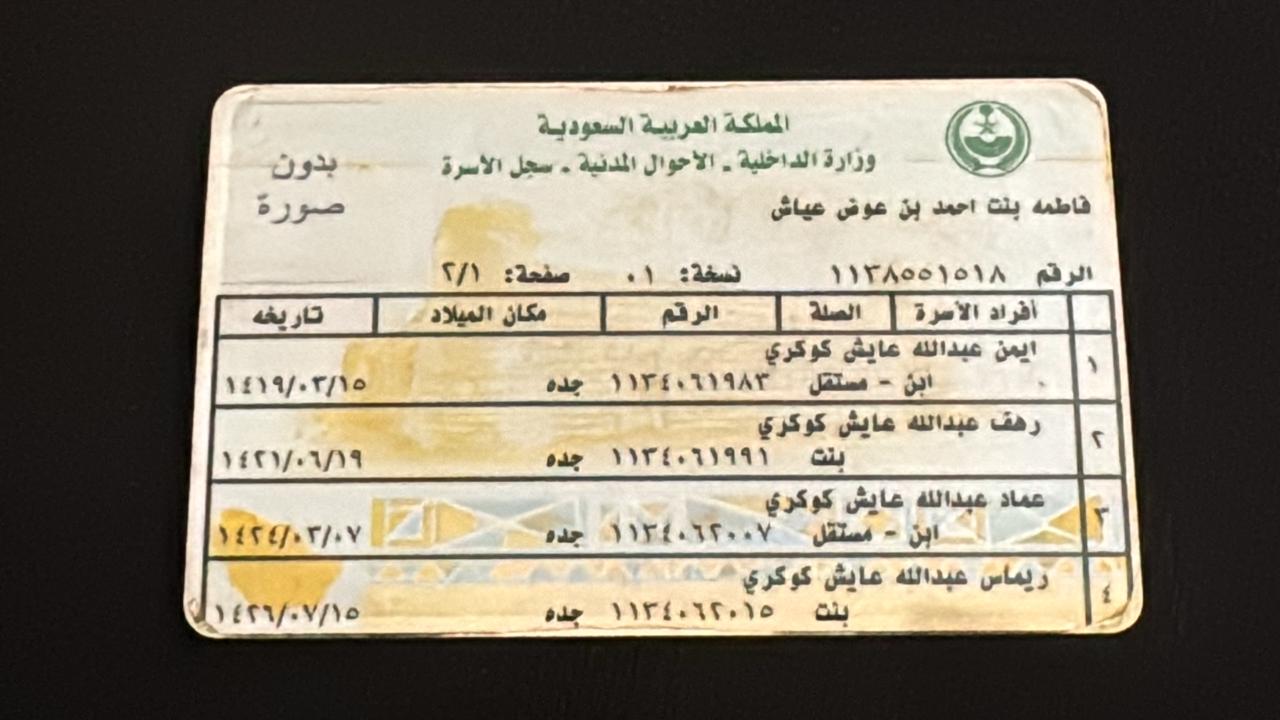 المملكة العربية السعودية
وزارة الداخلية ـ الأحوال المدنية ـ سجل الأسرة
بدون
صورة
فاطمه بنت احمد بن عوض عياش
الرقم ١١٣٨٥٥١٥١٨ نسخة: ٠١ صفحة: ٢/١
أفراد الأسرة الصلة الرقم مكان الميلاد تاريخه
١ ايمن عبدالله عايش كوكري
ابن - مستقل ١١٣٤٠٦١٩٨٣ جده ١٤١٩/٠٣/١٥
٢ رهف عبدالله عايش كوكري
بنت ١١٣٤٠٦١٩٩١ جده ١٤٢١/٠٦/١٩
٣ عماد عبدالله عايش كوكري
ابن - مستقل ١١٣٤٠٦٢٠٠٧ جده ١٤٢٤/٠٣/٠٧
٤ ريماس عبدالله عايش كوكري
بنت ١١٣٤٠٦٢٠١٥ جده ١٤٢٦/٠٧/١٥